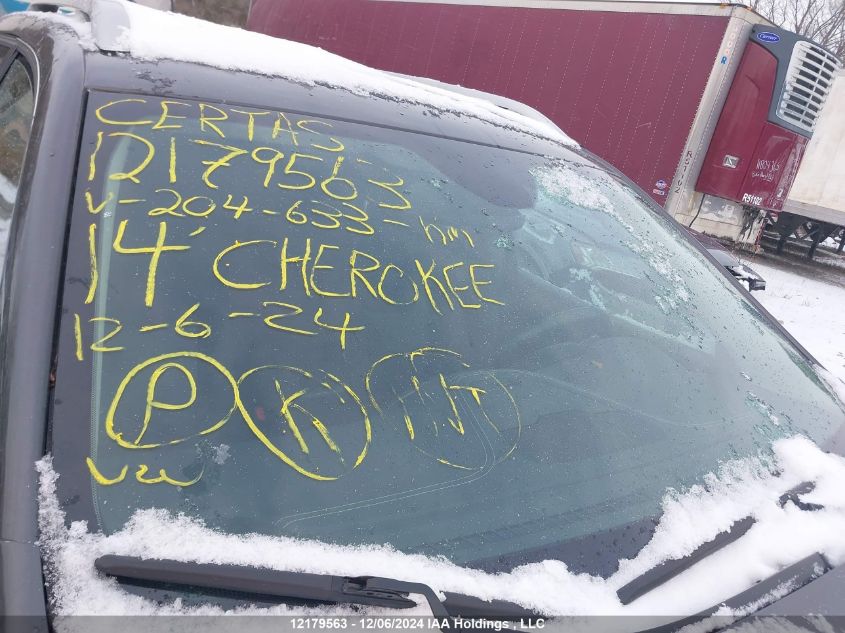 CERTAS
12179563
V-204-633-KM
14' CHEROKEE
12-6-24
P K
Carrier
R51102
12179563 - 12/06/2024 IAA Holdings , LLC